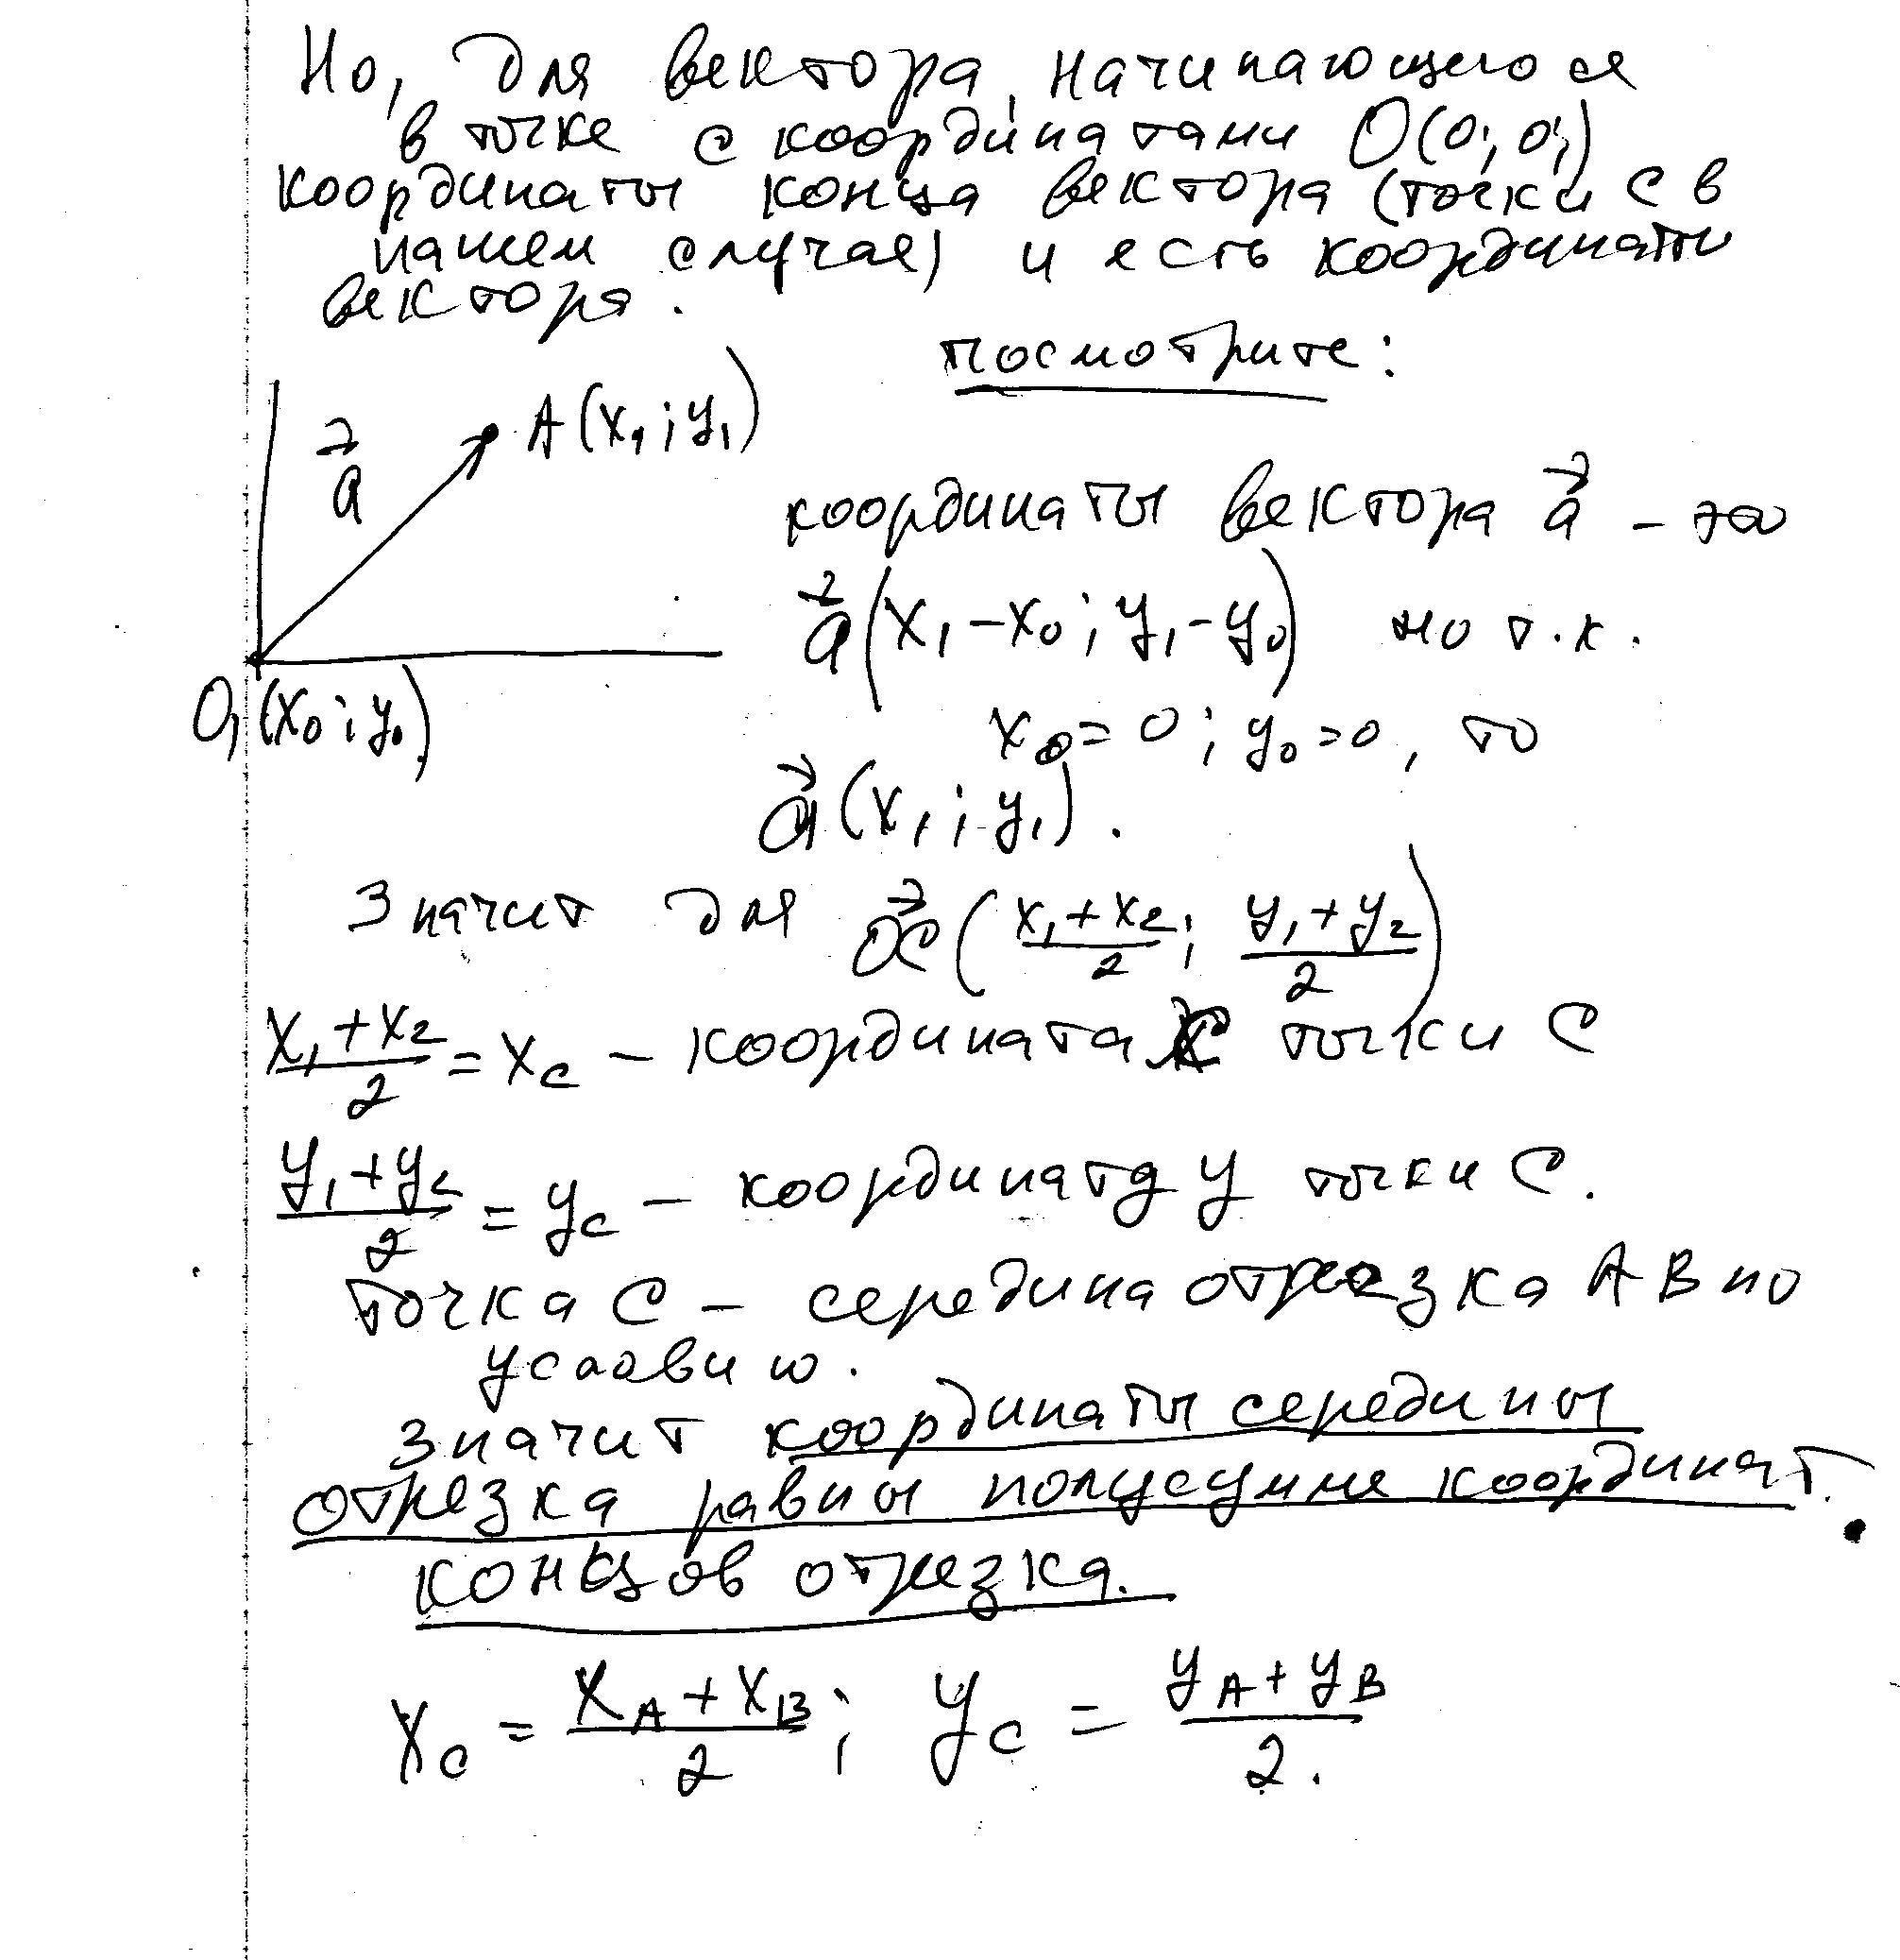 Но, для вектора, начинающегося
в точке с координатами O(0; 0;)
координаты конца вектора (точки С в
нашем случае) и есть координаты
вектора.
посмотрите:
A(x₁; y₁)
a⃗
координаты вектора a⃗ – это
a⃗(x₁ – x₀; y₁ – y₀) но т.к.
O, (x₀; y₀)
x₀ = 0; y₀ = 0, то
a⃗(x₁; y₁).
Значит для OC⃗ ((x₁ + x₂)/2; (y₁ + y₂)/2)
(x₁ + x₂)/2 = x_C – координата X точки С
(y₁ + y₂)/2 = y_C – координата y точки С.
Точка С – середина отрезка АВ по
условию.
Значит координаты середины
отрезка равны полусумме координат
концов отрезка.
x_C = (x_A + x_B)/2; y_C = (y_A + y_B)/2.